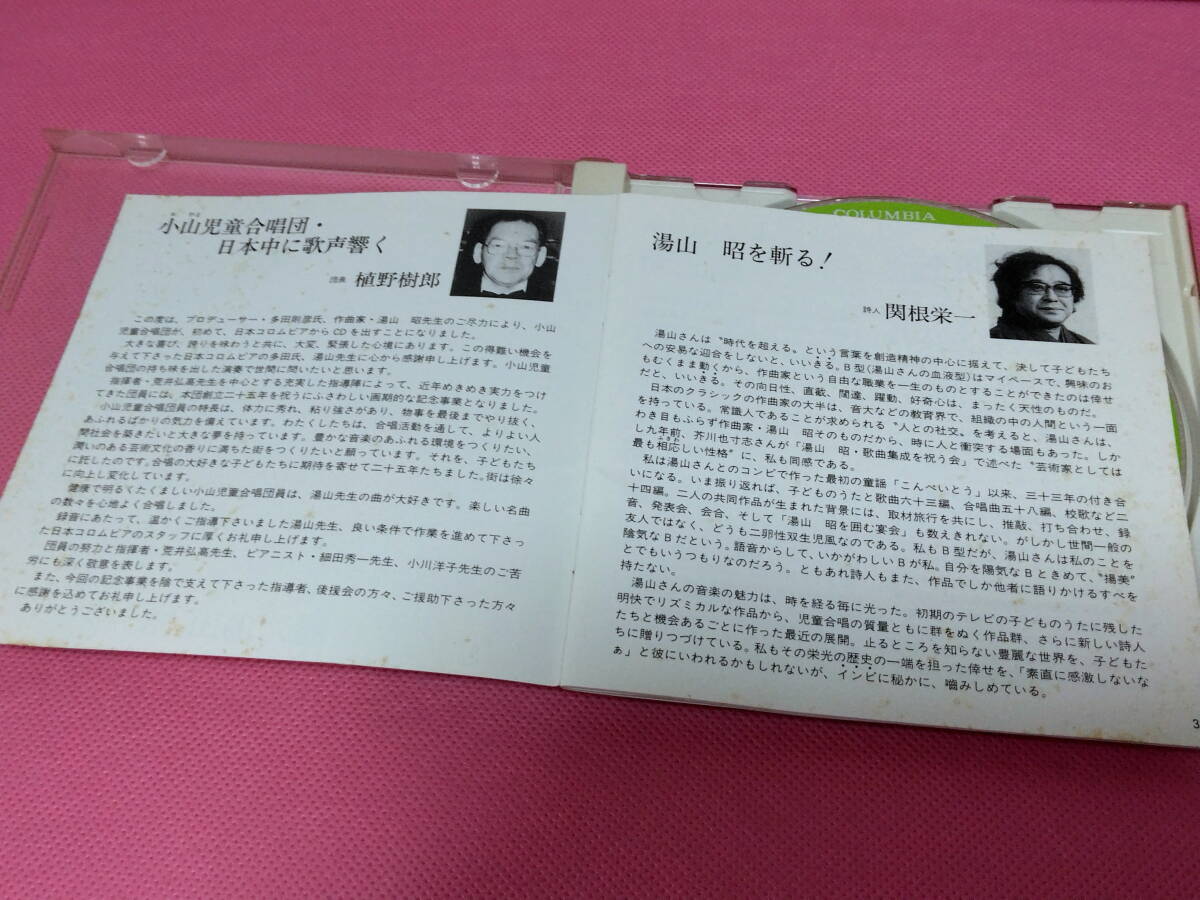 小山児童合唱団・
日本中に歌声響く
団長 植野樹郎
この度は、プロデューサー・多田則彦氏、作曲家・湯山 昭先生のご尽力により、小山
児童合唱団が、初めて、日本コロムビアからCDを出すことになりました。
大きな喜び、誇りを味わうと共に、大変、緊張した心境にあります。この得難い機会を
与えて下さった日本コロムビアの多田氏、湯山先生に心から感謝申し上げます。小山児童
合唱団の持ち味を出した演奏で世間に問いたいと思います。
指揮者・荒井弘高先生を中心とする充実した指導陣によって、近年めきめき実力をつけ
てきた団員には、本団創立二十五年を祝うにふさわしい画期的な記念事業となりました。
小山児童合唱団員の特長は、体力に秀れ、粘り強さがあり、物事を最後までやり抜く、
あふれるばかりの気力を備えています。わたくしたちは、合唱活動を通して、よりよい人
間社会を築きたいと大きな夢を持っています。豊かな音楽のあふれる環境をつくりたい、
潤いのある芸術文化の香りに満ちた街をつくりたいと願っています。それを、子どもたち
に託したのです。合唱の大好きな子どもたちに期待を寄せて二十五年たちました。街は徐々
に向上し変化しています。
健康で明るくたくましい小山児童合唱団員は、湯山先生の曲が大好きです。楽しい名曲
の数々を心地よく合唱しました。
録音にあたって、温かくご指導下さいました湯山先生、良い条件で作業を進めて下さっ
た日本コロムビアのスタッフに厚くお礼申し上げます。
団員の努力と指揮者・荒井弘高先生、ピアニスト・細田秀一先生、小川洋子先生のご苦
労にも深く敬意を表します。
また、今回の記念事業を陰で支えて下さった指導者、後援会の方々、ご援助下さった方々
に感謝を込めてお礼申し上げます。
ありがとうございました。
COLUMBIA
湯山 昭を斬る！
詩人 関根栄一
湯山さんは〝時代を超える〟という言葉を創造精神の中心に据えて、決して子どもたち
への安易な迎合をしないと、いいきる。B型（湯山さんの血液型）はマイペースで、興味のお
もむくまま動くから、作曲家という自由な職業を一生のものとすることができたのは倖せ
だと、いいきる。その向日性、直截、闊達、躍動、好奇心は、まったく天性のものだ。
日本のクラシックの作曲家の大半は、音大などの教育界で、組織の中の人間という一面
を持っている。常識人であることが求められる〝人との社交〟を考えると、湯山さんは、
わき目もふらず作曲家・湯山 昭そのものだから、時に人と衝突する場面もあった。しか
し九年前、芥川也寸志さんが「湯山 昭・歌曲集成を祝う会」で述べた〝芸術家としては
最も相応しい性格〟に、私も同感である。
私は湯山さんとのコンビで作った最初の童謡「こんぺいとう」以来、三十三年の付き合
いになる。いま振り返れば、子どものうたと歌曲六十三編、合唱曲五十八編、校歌など二
十四編。二人の共同作品が生まれた背景には、取材旅行を共にし、推敲、打ち合わせ、録
音、発表会、会合、そして「湯山 昭を囲む宴会」も数えきれない。がしかし世間一般の
友人ではなく、どうも二卵性双生児風なのである。私もB型だが、湯山さんは私のことを
陰気なBだという。語音からして、いかがわしいBが私。自分を陽気なBときめて、〝揚美〟
とでもいうつもりなのだろう。ともあれ詩人もまた、作品でしか他者に語りかけるすべを
持たない。
湯山さんの音楽の魅力は、時を経る毎に光った。初期のテレビの子どものうたに残した
明快でリズミカルな作品から、児童合唱の質量ともに群をぬく作品群、さらに新しい詩人
たちと機会あるごとに作った最近の展開。止るところを知らない豊麗な世界を、子どもた
ちに贈りつづけている。私もその栄光の歴史の一端を担った倖せを、「素直に感激しないな
ぁ」と彼にいわれるかもしれないが、インビに秘かに、嚙みしめている。
3